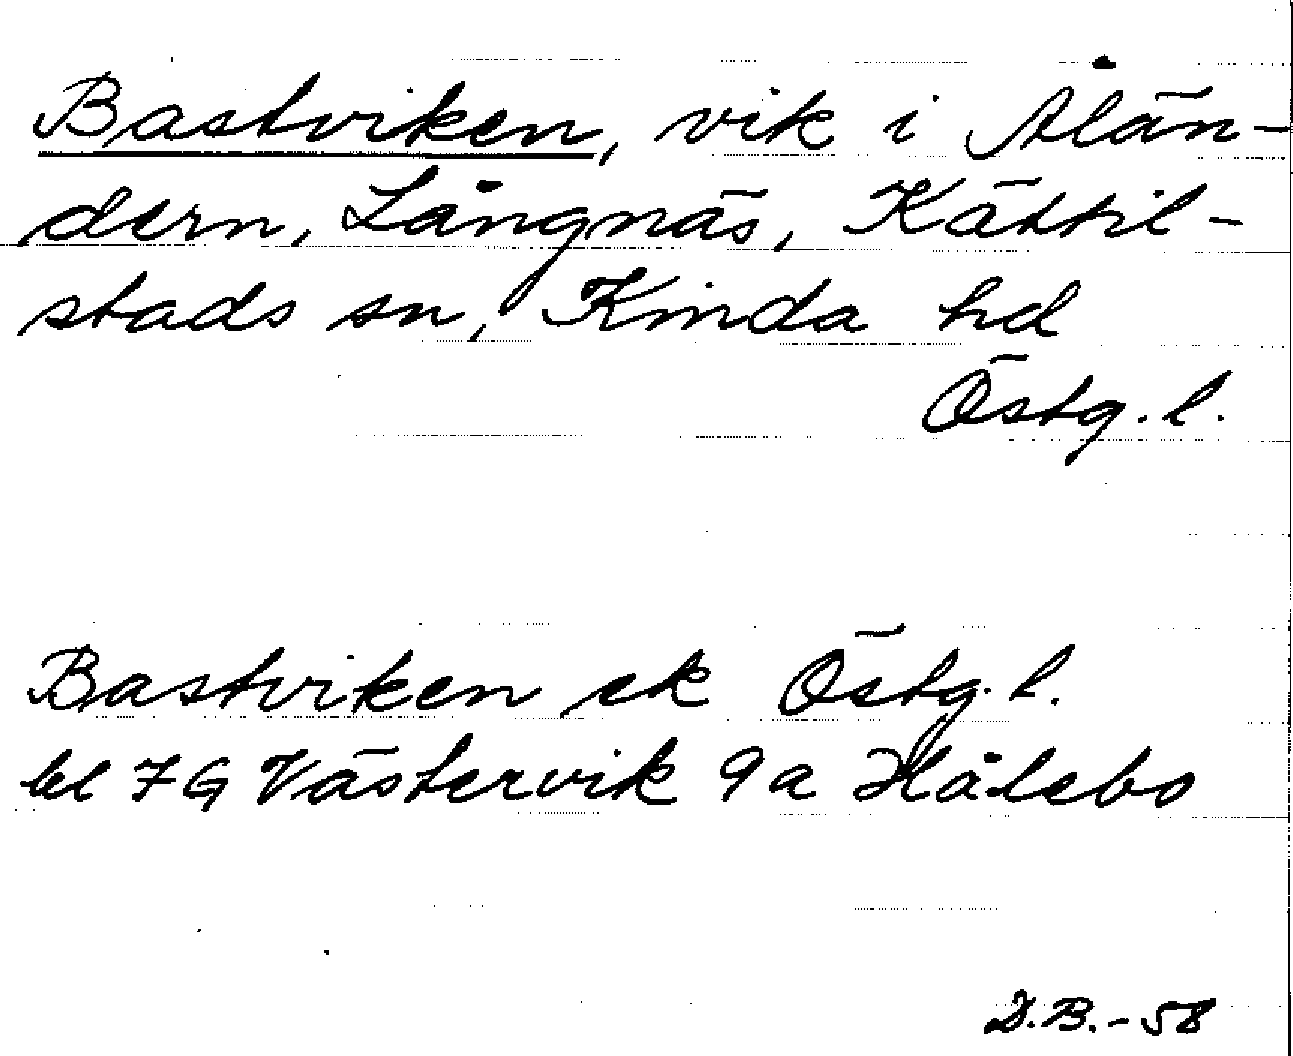 Bastviken, vik i Ålän-
dern, Långnäs, Kättil-
stads sn, Kinda hd
Östg. l.
Bastviken ek Östg. l.
bl 7G Västervik 9a Hålebo
D.B.-58